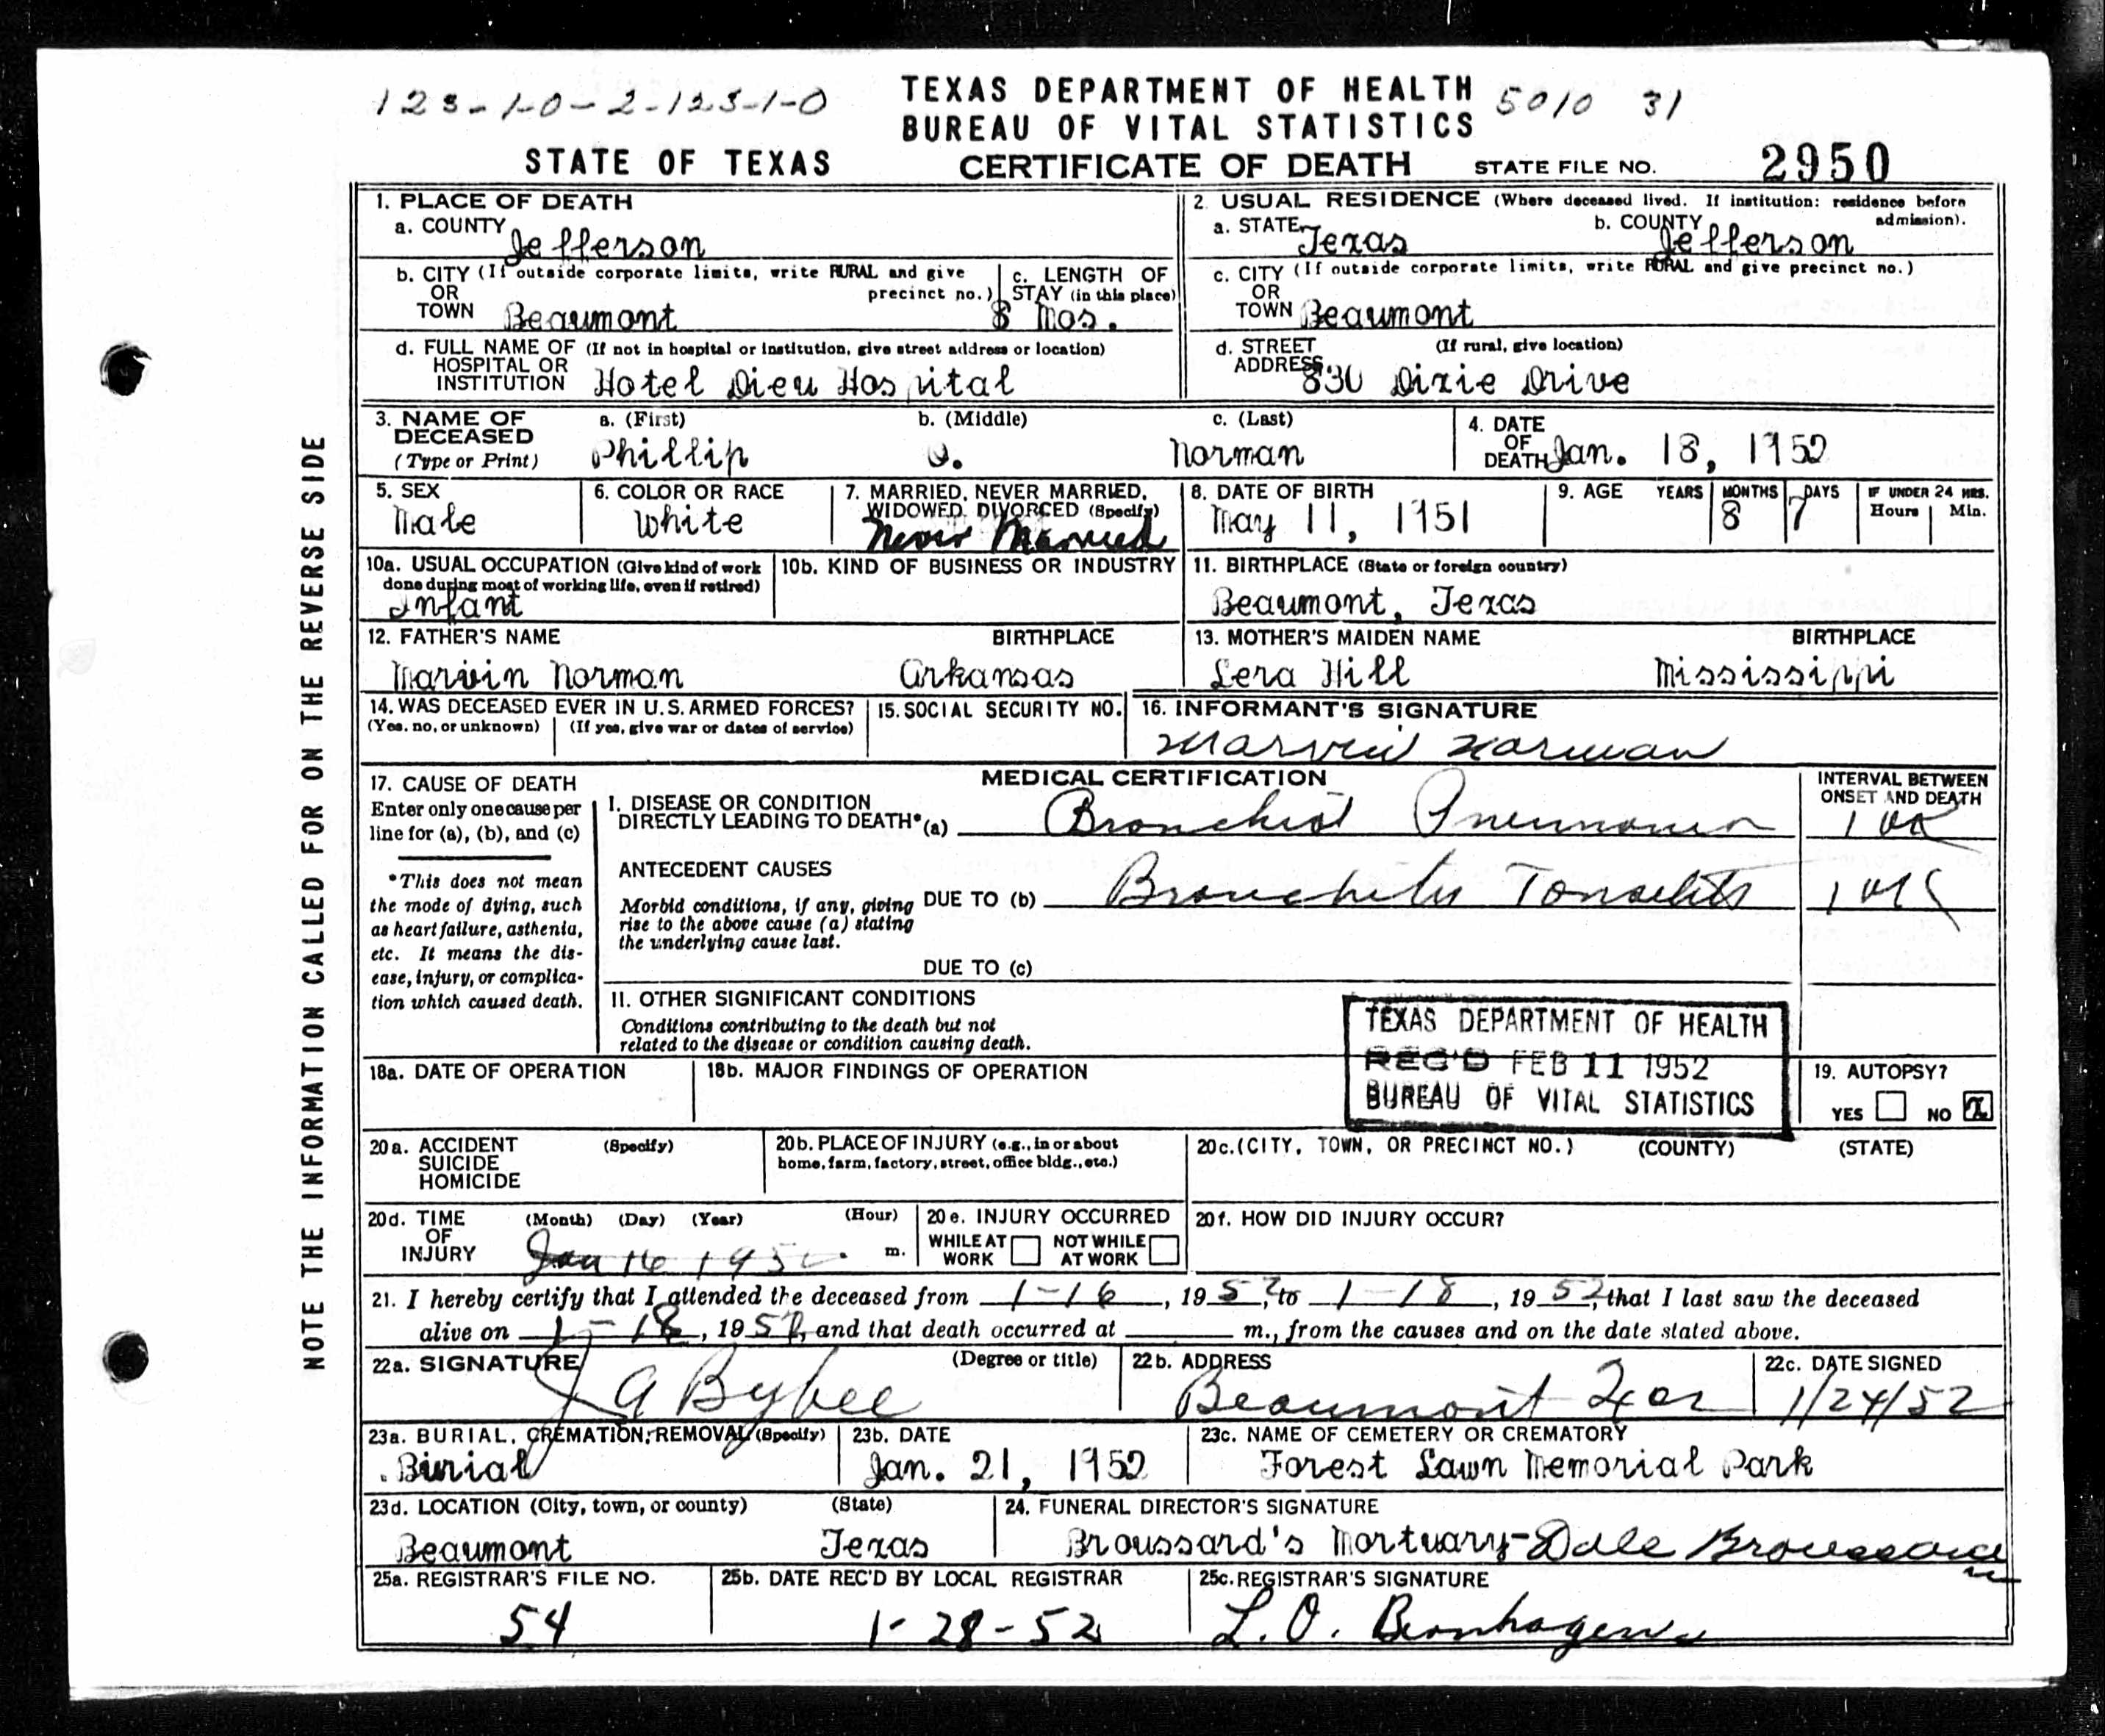 123-1-0-2-123-1-0
TEXAS DEPARTMENT OF HEALTH 5010 31
BUREAU OF VITAL STATISTICS
STATE OF TEXAS CERTIFICATE OF DEATH STATE FILE NO. 2950
NOTE THE INFORMATION CALLED FOR ON THE REVERSE SIDE
1. PLACE OF DEATH
a. COUNTY Jefferson
2. USUAL RESIDENCE (Where deceased lived. If institution: residence before admission).
a. STATE Texas b. COUNTY Jefferson
b. CITY (If outside corporate limits, write RURAL and give precinct no.)
OR
TOWN Beaumont
c. LENGTH OF
STAY (in this place)
8 Mos.
c. CITY (If outside corporate limits, write RURAL and give precinct no.)
OR
TOWN Beaumont
d. FULL NAME OF (If not in hospital or institution, give street address or location)
HOSPITAL OR
INSTITUTION Hotel Dieu Hospital
d. STREET (If rural, give location)
ADDRESS 830 Dixie Drive
3. NAME OF a. (First) b. (Middle) c. (Last)
DECEASED
(Type or Print) Phillip Norman
4. DATE
OF
DEATH Jan. 18, 1952
5. SEX
Male
6. COLOR OR RACE
White
7. MARRIED, NEVER MARRIED,
WIDOWED, DIVORCED (Specify)
Never Married
8. DATE OF BIRTH
May 11, 1951
9. AGE YEARS MONTHS DAYS IF UNDER 24 HRS.
Hours Min.
8 7
10a. USUAL OCCUPATION (Give kind of work
done during most of working life, even if retired)
Infant
10b. KIND OF BUSINESS OR INDUSTRY
11. BIRTHPLACE (State or foreign country)
Beaumont, Texas
12. FATHER'S NAME BIRTHPLACE
Marvin Norman Arkansas
13. MOTHER'S MAIDEN NAME BIRTHPLACE
Lera Hill Mississippi
14. WAS DECEASED EVER IN U.S. ARMED FORCES?
(Yes, no, or unknown) (If yes, give war or dates of service)
15. SOCIAL SECURITY NO.
16. INFORMANT'S SIGNATURE
Marvin Norman
17. CAUSE OF DEATH
Enter only one cause per
line for (a), (b), and (c)
*This does not mean
the mode of dying, such
as heart failure, asthenia,
etc. It means the dis-
ease, injury, or complica-
tion which caused death.
MEDICAL CERTIFICATION
I. DISEASE OR CONDITION
DIRECTLY LEADING TO DEATH* (a) Bronchial Pneumonia
INTERVAL BETWEEN
ONSET AND DEATH
1 wk
ANTECEDENT CAUSES
Morbid conditions, if any, giving
rise to the above cause (a) stating
the underlying cause last.
DUE TO (b) Bronchitis Tonsilitis 1 wk
DUE TO (c)
II. OTHER SIGNIFICANT CONDITIONS
Conditions contributing to the death but not
related to the disease or condition causing death.
TEXAS DEPARTMENT OF HEALTH
REC'D FEB 11 1952
BUREAU OF VITAL STATISTICS
18a. DATE OF OPERATION
18b. MAJOR FINDINGS OF OPERATION
19. AUTOPSY?
YES NO X
20a. ACCIDENT (Specify)
SUICIDE
HOMICIDE
20b. PLACE OF INJURY (e.g., in or about
home, farm, factory, street, office bldg., etc.)
20c. (CITY, TOWN, OR PRECINCT NO.) (COUNTY) (STATE)
20d. TIME (Month) (Day) (Year) (Hour)
OF
INJURY Jan 16 1952 m.
20e. INJURY OCCURRED
WHILE AT NOT WHILE
WORK AT WORK
20f. HOW DID INJURY OCCUR?
21. I hereby certify that I attended the deceased from 1-16, 1952, to 1-18, 1952, that I last saw the deceased
alive on 1-18, 1952, and that death occurred at m., from the causes and on the date stated above.
22a. SIGNATURE (Degree or title)
J A Bybee
22b. ADDRESS
Beaumont Tex
22c. DATE SIGNED
1/24/52
23a. BURIAL, CREMATION, REMOVAL (Specify)
Burial
23b. DATE
Jan. 21, 1952
23c. NAME OF CEMETERY OR CREMATORY
Forest Lawn Memorial Park
23d. LOCATION (City, town, or county) (State)
Beaumont Texas
24. FUNERAL DIRECTOR'S SIGNATURE
Broussard's Mortuary-Dale Broussard
25a. REGISTRAR'S FILE NO.
54
25b. DATE REC'D BY LOCAL REGISTRAR
1-28-52
25c. REGISTRAR'S SIGNATURE
L.O. Bernhagen